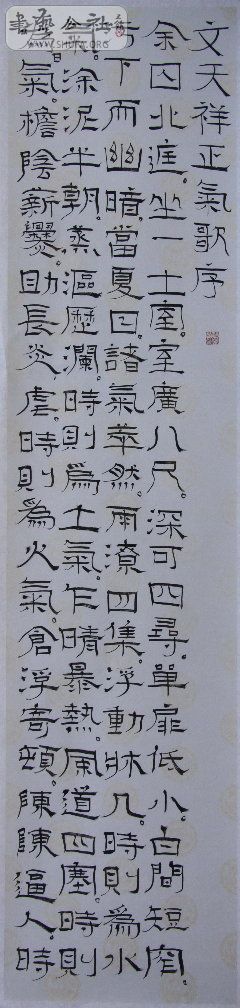 文天祥正氣歌序
余囚北庭。坐一土室。室廣八尺。深可四尋。單扉低小。白間短窄。
下而幽暗。當夏日。諸氣萃然。雨潦四集。浮動牀几。時則為水
涂泥半朝。蒸漚歷瀾。時則為土氣。乍晴暴熱。風道四塞。時則
氣。檐陰薪爨。助長炎虐。時則為火氣。倉浮寄頓。陳陳逼人。時
WWW.SHUFA.ORG